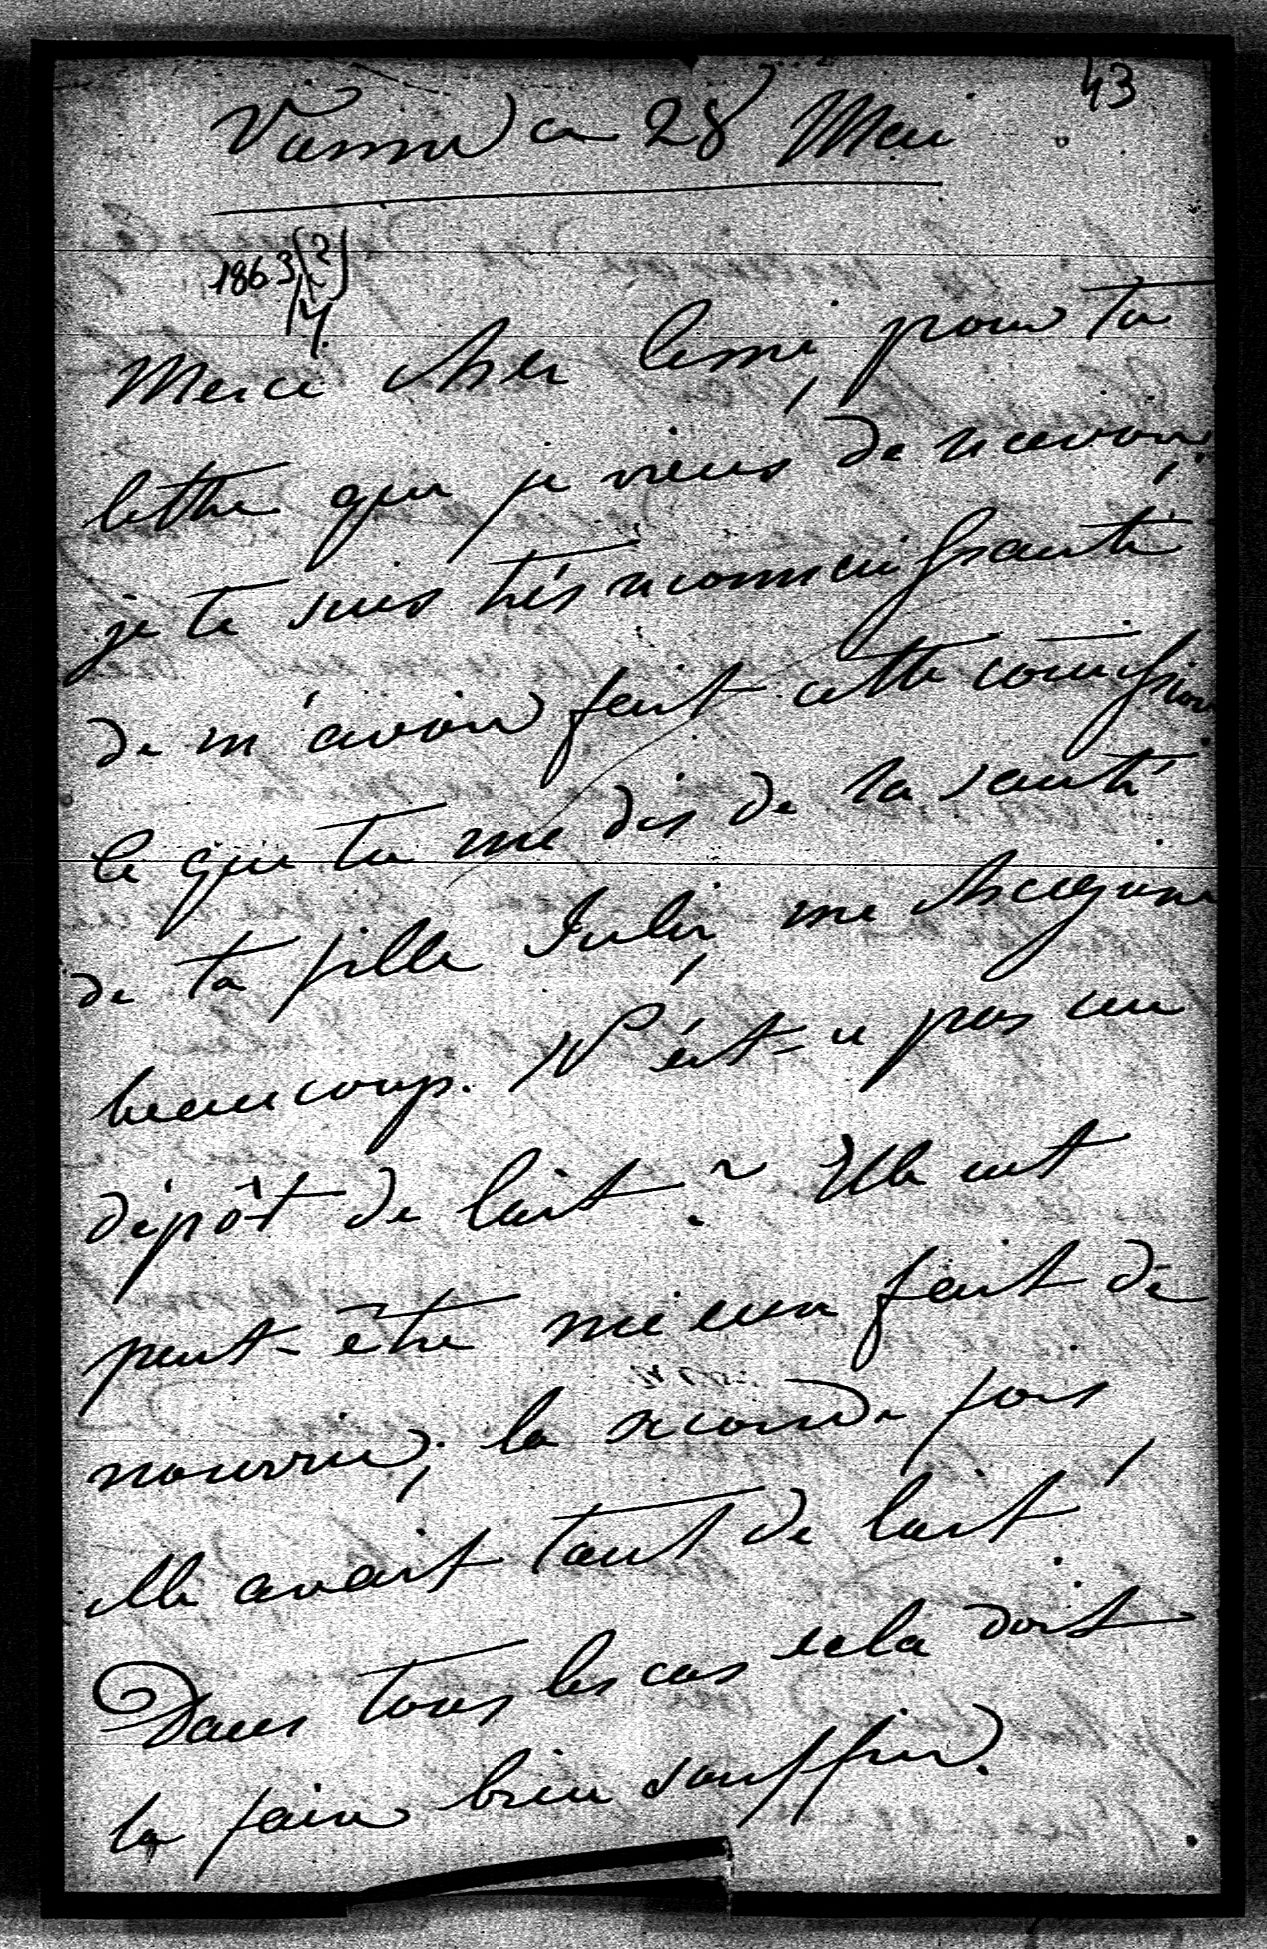 43
Vienne ce 28 Mai
1863(?)
Merci cher ami, pour ta
lettre que je viens de recevoir;
je te suis très reconnaissante
de m'avoir fait cette comission
Ce que tu me dis de la santé
de ta fille Julie, me chagrine
beaucoup. N'est-ce pas un
dépôt de lait? Elle eut
peut-être mieux fait de
nourrir; la seconde fois
elle avait tant de lait!
Dans tous les cas cela doit
la faire bien souffrir.